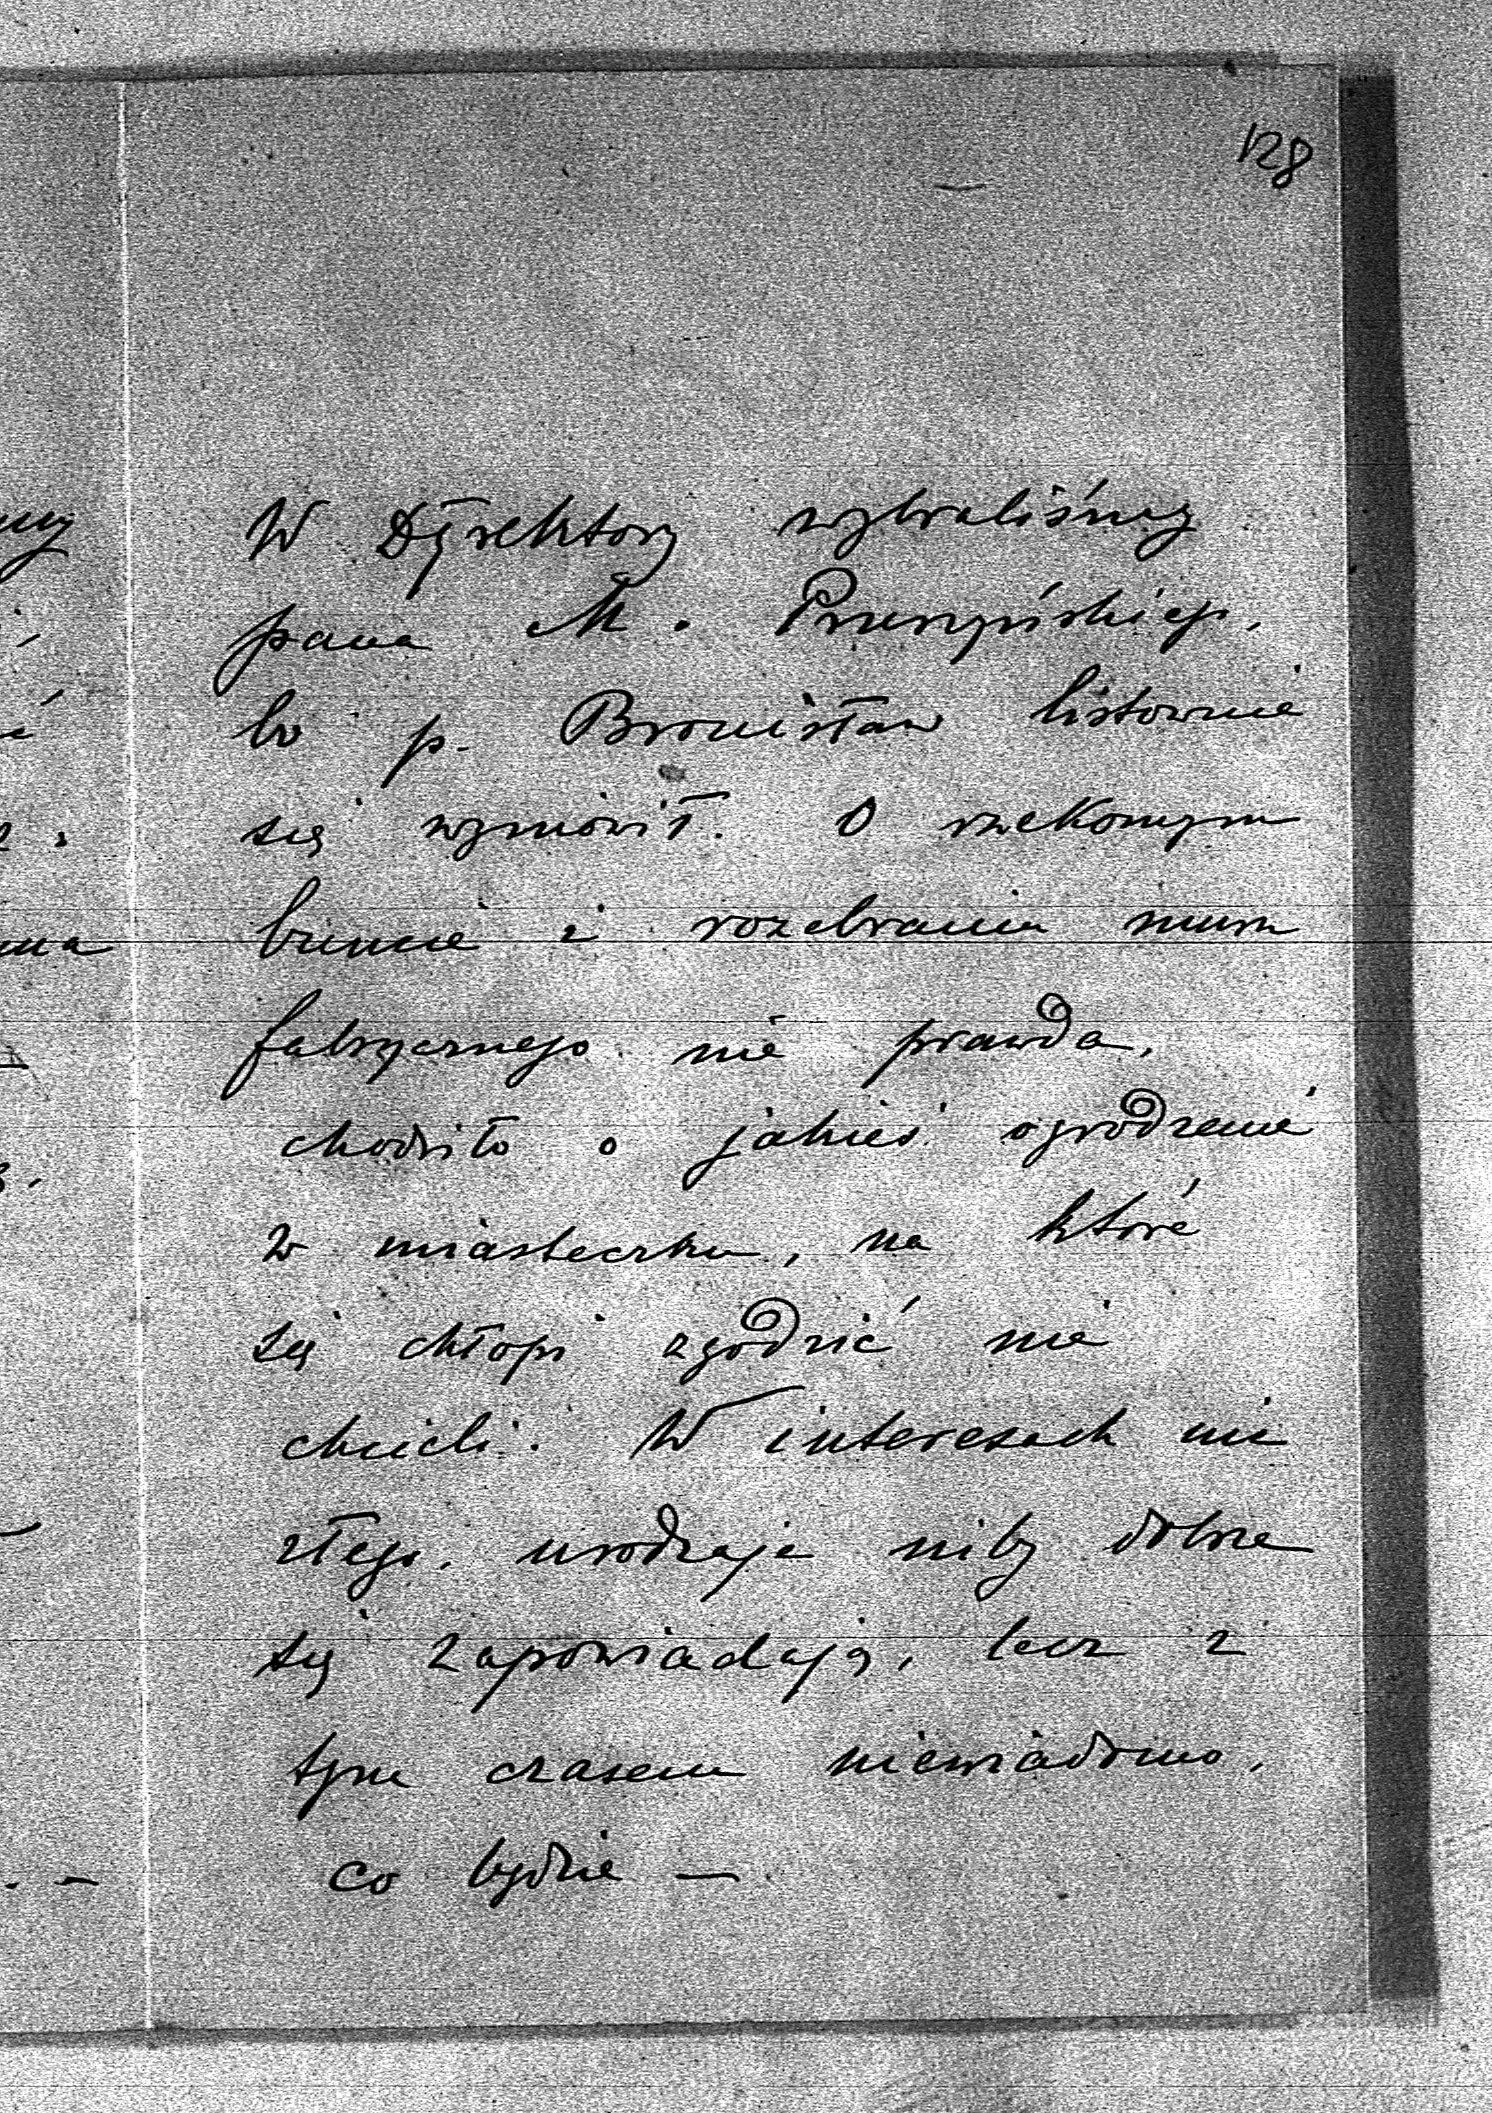 128
W Dyrektory wybraliśmy
pana M. Pruszyńskiego,
bo p. Bronisław listownie
się wymówił. O rzekomym
buncie i rozebraniu muru
fabrycznego nie prawda,
chodziło o jakieś ogrodzenie
w miasteczku, na które
się chłopi zgodzić nie
chcieli. W interesach nic
złego, urodzaje niby dobre
się zapowiadają, lecz z
tym czasem niewiadomo,
co będzie —